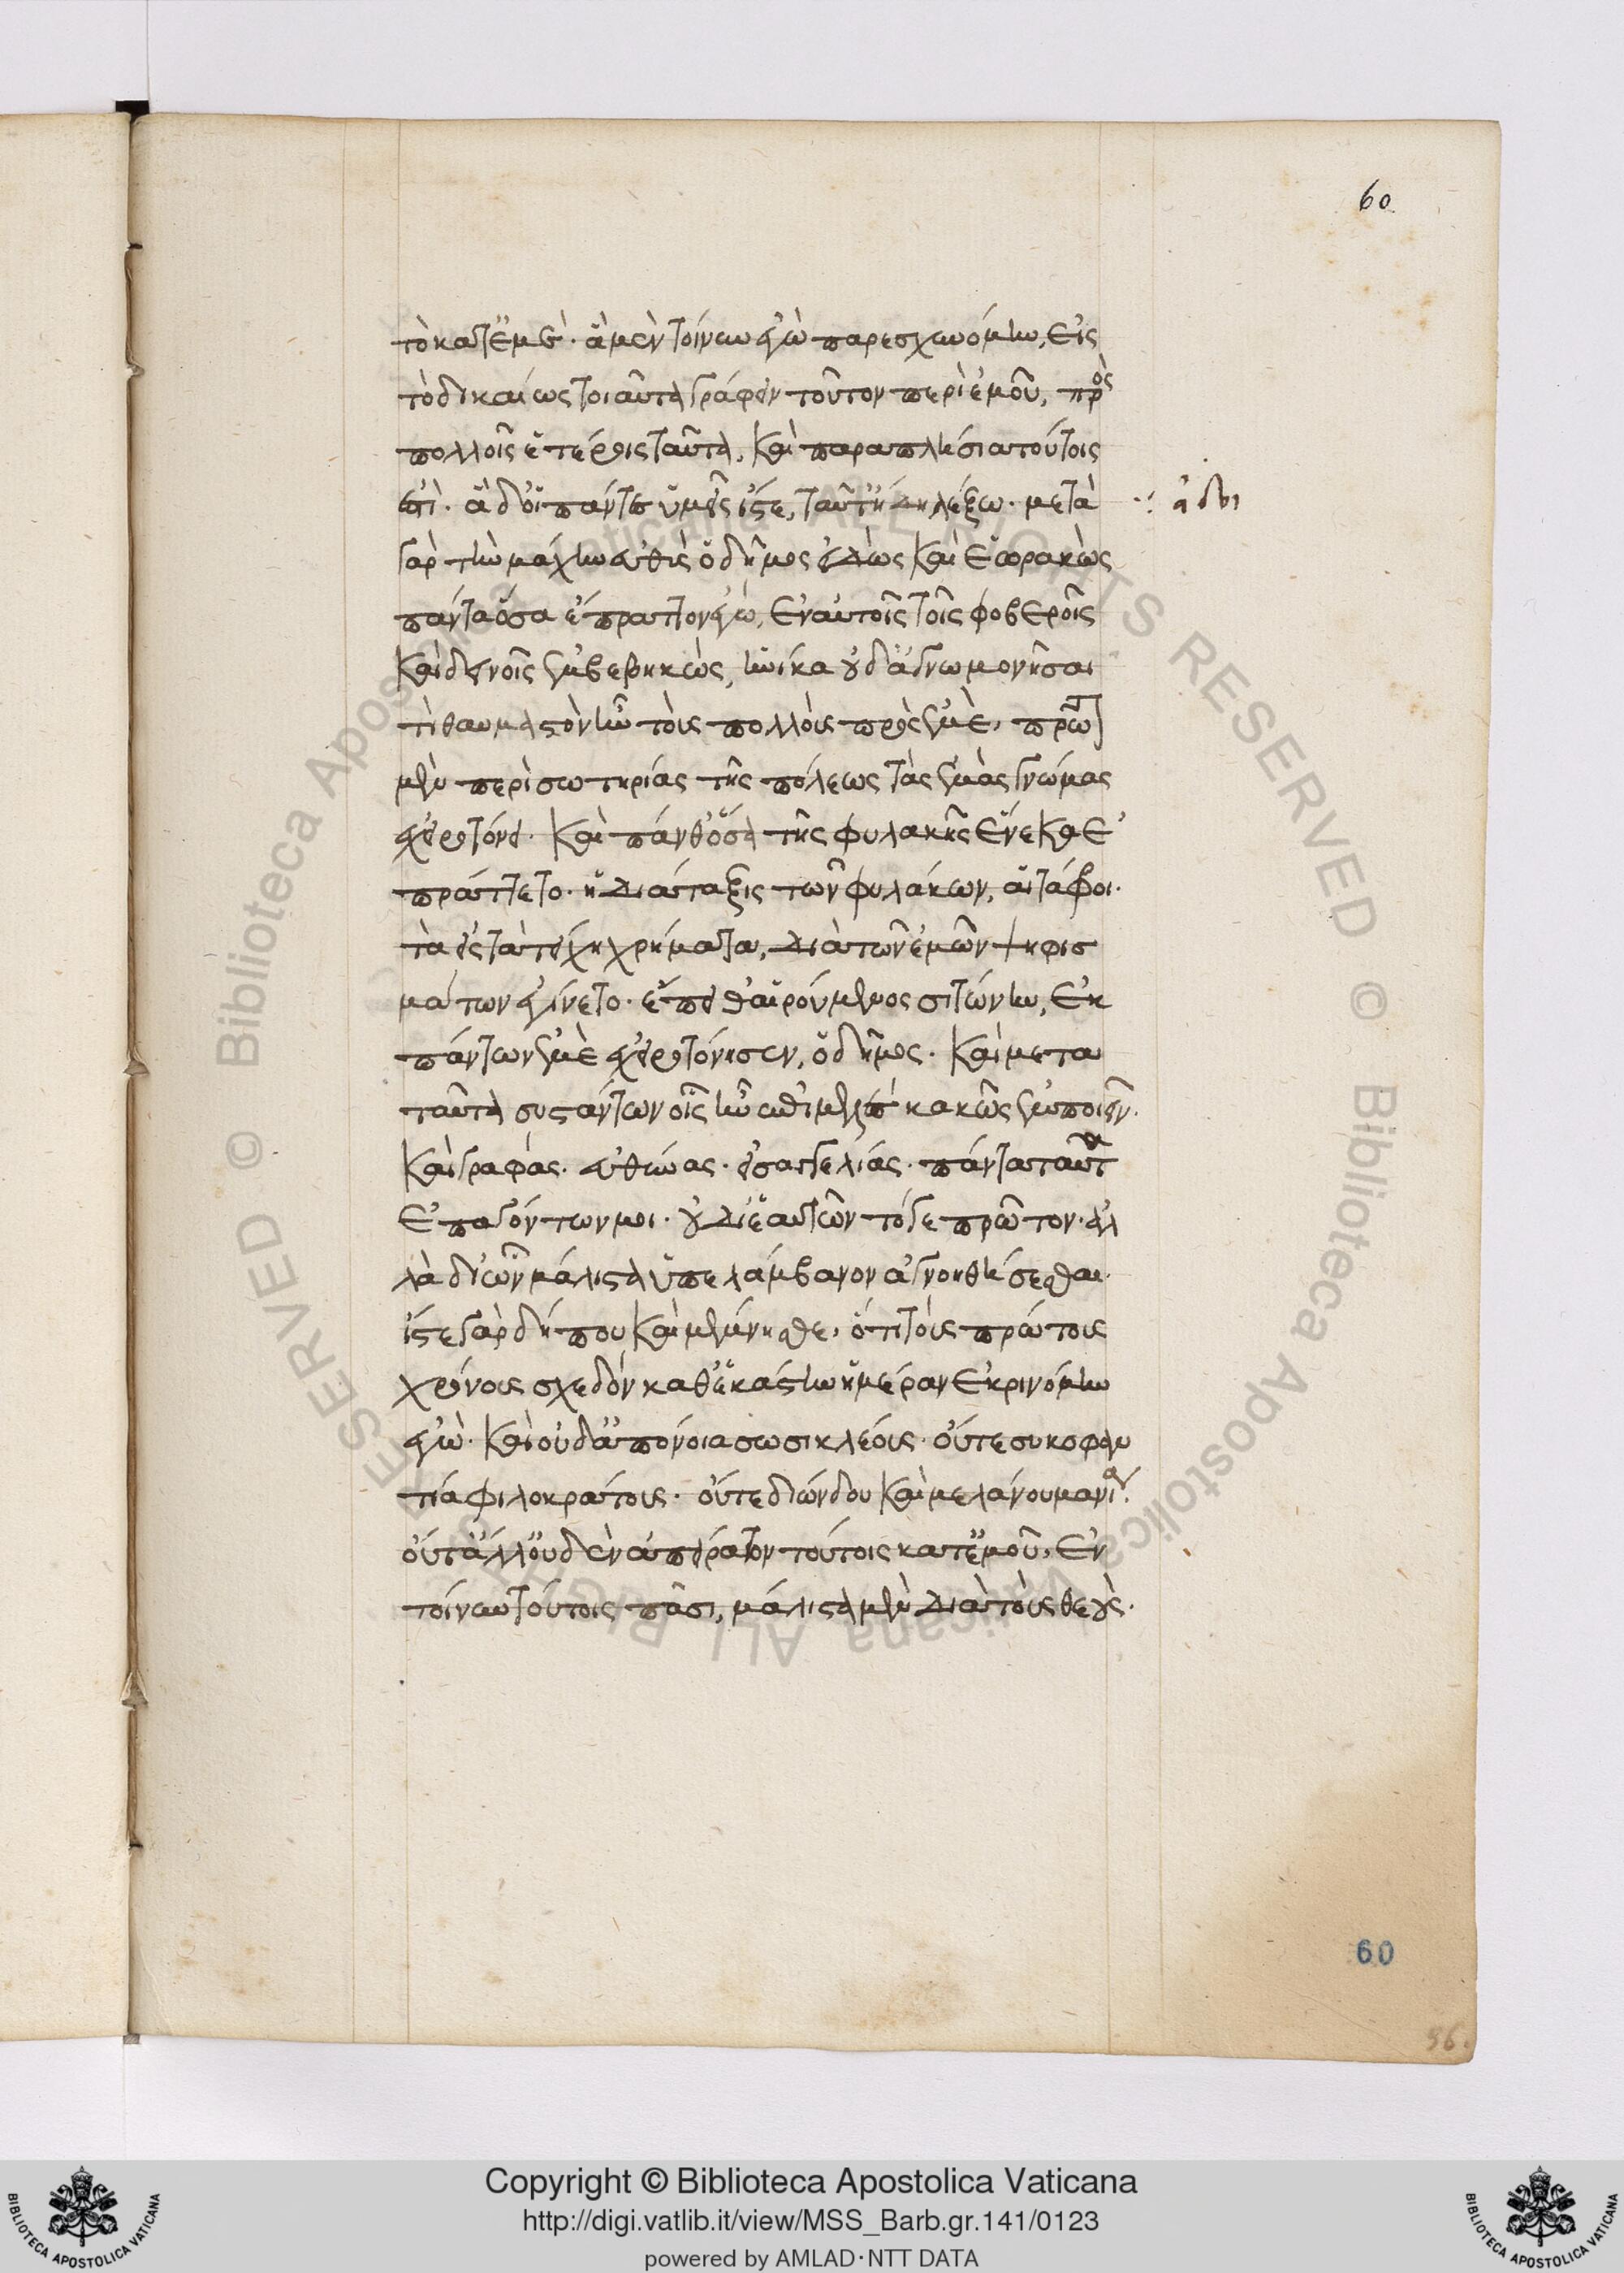 60
τὸ κατ' ἐμέ. ἃ μὲν τοίνυν ἐγὼ παρεσχυνόμην, εἰς
τὸ δικαίως τοιαῦτα γράφειν τοῦτον περὶ ἐμοῦ, πρὸς
πολλοῖς ἑτέροις ταῦτα, καὶ παραπλήσια τούτοις
ἐστὶ. ἃ δ' οἱ πάντες ὑμεῖς ἴστε, ταῦτ' ἤδη λέξω. μετὰ
ᾄδει
γὰρ τὴν μάχην εὐθὺς ὁ δῆμος εἰδὼς καὶ ἑωρακὼς
πάντα ὅσα ἔπραττον ἐγώ, ἐν αὐτοῖς τοῖς φοβεροῖς
καὶ δεινοῖς ἐμβεβηκὼς, ἡνίκα οὐδ' ἀγνωμονῆσαι
τὶ θαυμαστὸν ἦν τοὺς πολλοὺς πρὸς ἐμὲ, πρῶτ
μὲν περὶ σωτηρίας τῆς πόλεως τὰς ἐμὰς γνώμας
ἐχειροτόνει. καὶ πάνθ' ὅσα τῆς φυλακῆς ἕνεκα ἐ
πράττετο. ἡ διάταξις τῶν φυλάκων, αἱ τάφροι.
τὰ εἰς τὰ τείχη χρήματα, διὰ τῶν ἐμῶν ψηφισ
μάτων ἐγίνετο. ἔπειθ' αἱρούμενος σιτώνην, ἐκ
πάντων ἐμὲ ἐχειροτόνησεν, ὁ δῆμος. καὶ μετα
ταῦτα συστάντων οἷς ἦν ἐπιμελὲς κακῶς ἐμὲ ποιεῖν.
καὶ γραφάς. εὐθύνας. εἰσαγγελίας. πάντα ταῦτα
ἐπαγόντων μοι. οὐ δι' ἑαυτῶν τό γε πρῶτον. ἀλ
λὰ δι' ὧν μάλιστα ὑπελάμβανον ἀγνοηθήσεσθαι.
ἴστε γὰρ δήπου καὶ μέμνησθε, ὅτι τοὺς πρώτους
χρόνους σχεδὸν καθ' ἑκάστην ἡμέραν ἐκρινόμην
ἐγὼ. καὶ οὐδ' ἀπόνοια σωσικλέους. οὔτε συκοφαν
τία φιλοκράτους. οὔτε διώνδου καὶ μελάνου μανία.
οὔτ' ἄλλ' οὐδὲν ἀπείρατον τούτοις κατ' ἐμοῦ, ἐν
τοίνυν τούτοις πᾶσι, μάλιστα μὲν διὰ τοὺς θεοὺς.
60
56.
Copyright © Biblioteca Apostolica Vaticana
http://digi.vatlib.it/view/MSS_Barb.gr.141/0123
powered by AMLAD·NTT DATA